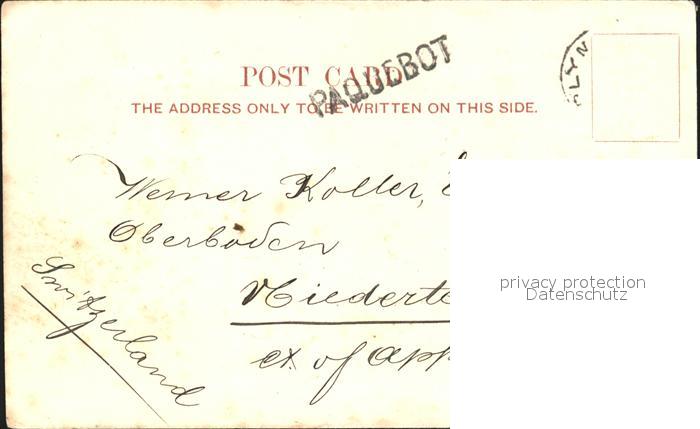 POST CARD
PAQUEBOT
THE ADDRESS ONLY TO BE WRITTEN ON THIS SIDE.
LYN
Werner Koller,
Oberboden
Niederte
ct. of App
Switzerland
privacy protection
Datenschutz